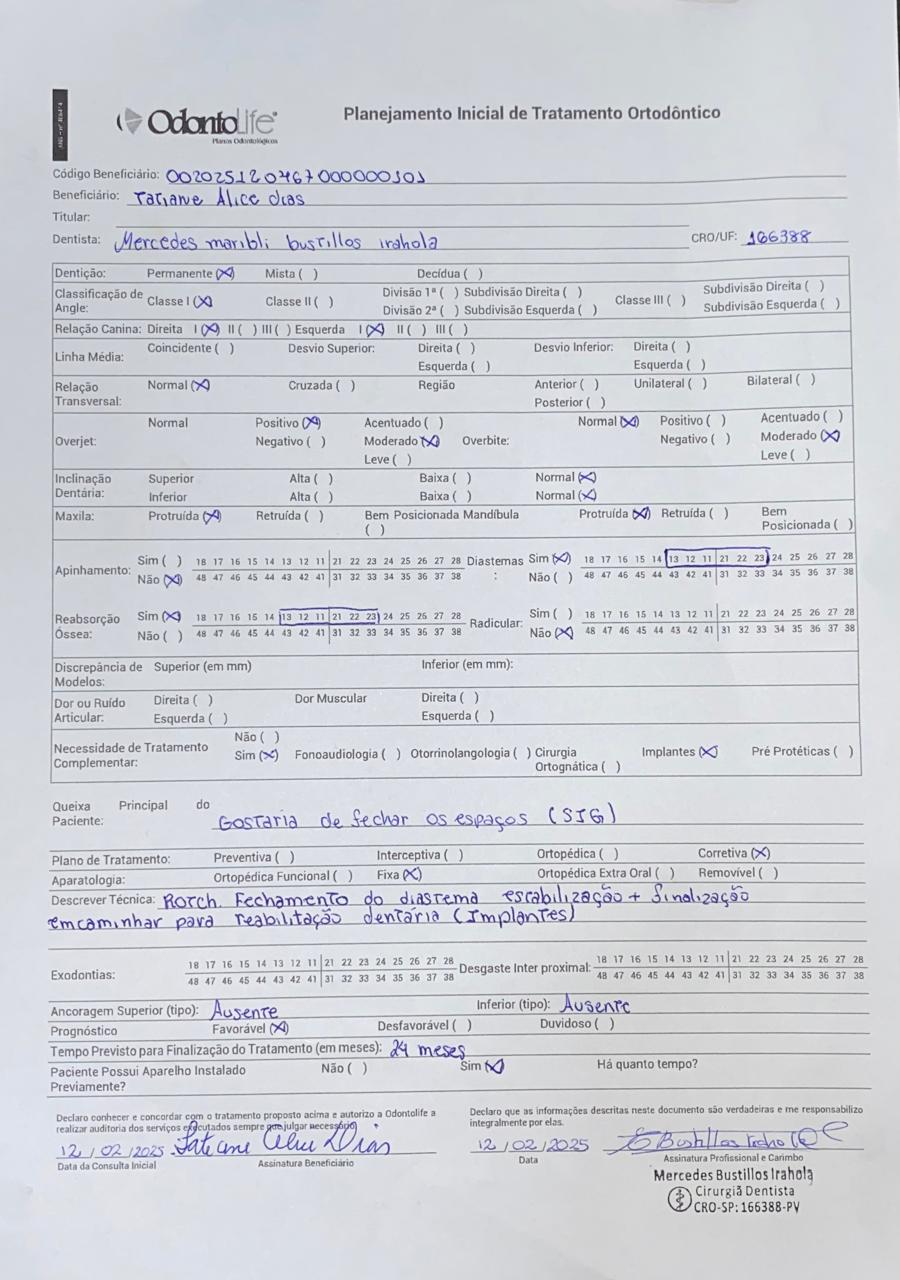 OdontoLife
Planos Odontológicos
Planejamento Inicial de Tratamento Ortodôntico
Código Beneficiário: 002025120467000000101
Beneficiário: Tatiane Alice dias
Titular:
Dentista: Mercedes maribli bustillos irahola CRO/UF: 166388
Dentição: Permanente (X) Mista ( ) Decídua ( )
Classificação de Angle: Classe I (X) Classe II ( ) Divisão 1ª ( ) Subdivisão Direita ( ) Classe III ( ) Subdivisão Direita ( )
Divisão 2ª ( ) Subdivisão Esquerda ( ) Subdivisão Esquerda ( )
Relação Canina: Direita I (X) II ( ) III ( ) Esquerda I (X) II ( ) III ( )
Linha Média: Coincidente ( ) Desvio Superior: Direita ( ) Desvio Inferior: Direita ( )
Esquerda ( ) Esquerda ( )
Relação Transversal: Normal (X) Cruzada ( ) Região Anterior ( ) Unilateral ( ) Bilateral ( )
Posterior ( )
Normal Positivo (X) Acentuado ( ) Normal (X) Positivo ( ) Acentuado ( )
Overjet: Negativo ( ) Moderado (X) Overbite: Negativo ( ) Moderado (X)
Leve ( ) Leve ( )
Inclinação Dentária: Superior Alta ( ) Baixa ( ) Normal (X)
Inferior Alta ( ) Baixa ( ) Normal (X)
Maxila: Protruída (X) Retruída ( ) Bem Posicionada ( ) Mandíbula Protruída (X) Retruída ( ) Bem Posicionada ( )
Apinhamento: Sim ( ) 18 17 16 15 14 13 12 11 21 22 23 24 25 26 27 28 Diastemas: Sim (X) 18 17 16 15 14 13 12 11 21 22 23 24 25 26 27 28
Não (X) 48 47 46 45 44 43 42 41 31 32 33 34 35 36 37 38 Não ( ) 48 47 46 45 44 43 42 41 31 32 33 34 35 36 37 38
Reabsorção Óssea: Sim (X) 18 17 16 15 14 13 12 11 21 22 23 24 25 26 27 28 Radicular: Sim ( ) 18 17 16 15 14 13 12 11 21 22 23 24 25 26 27 28
Não ( ) 48 47 46 45 44 43 42 41 31 32 33 34 35 36 37 38 Não (X) 48 47 46 45 44 43 42 41 31 32 33 34 35 36 37 38
Discrepância de Modelos: Superior (em mm) Inferior (em mm):
Dor ou Ruído Articular: Direita ( ) Dor Muscular Direita ( )
Esquerda ( ) Esquerda ( )
Não ( )
Necessidade de Tratamento Complementar: Sim (X) Fonoaudiologia ( ) Otorrinolangologia ( ) Cirurgia Ortognática ( ) Implantes (X) Pré Protéticas ( )
Queixa Principal do Paciente: Gostaria de fechar os espaços (SIG)
Plano de Tratamento: Preventiva ( ) Interceptiva ( ) Ortopédica ( ) Corretiva (X)
Aparatologia: Ortopédica Funcional ( ) Fixa (X) Ortopédica Extra Oral ( ) Removível ( )
Descrever Técnica: Roth. Fechamento do diastema estabilização + finalização
emcaminhar para reabilitação dentária (Implantes)
Exodontias: 18 17 16 15 14 13 12 11 21 22 23 24 25 26 27 28 Desgaste Inter proximal: 18 17 16 15 14 13 12 11 21 22 23 24 25 26 27 28
48 47 46 45 44 43 42 41 31 32 33 34 35 36 37 38 48 47 46 45 44 43 42 41 31 32 33 34 35 36 37 38
Ancoragem Superior (tipo): Ausente Inferior (tipo): Ausente
Prognóstico Favorável (X) Desfavorável ( ) Duvidoso ( )
Tempo Previsto para Finalização do Tratamento (em meses): 24 meses
Paciente Possui Aparelho Instalado Previamente? Não ( ) Sim (X) Há quanto tempo?
Declaro conhecer e concordar com o tratamento proposto acima e autorizo a Odontolife a
realizar auditoria dos serviços executados sempre que julgar necessário.
Declaro que as informações descritas neste documento são verdadeiras e me responsabilizo
integralmente por elas.
12/02/2025 Tatiane Alice Dias
Data da Consulta Inicial Assinatura Beneficiário
12/02/2025
Data Assinatura Profissional e Carimbo
Mercedes Bustillos Irahola
Cirurgiã Dentista
CRO-SP: 166388-PV